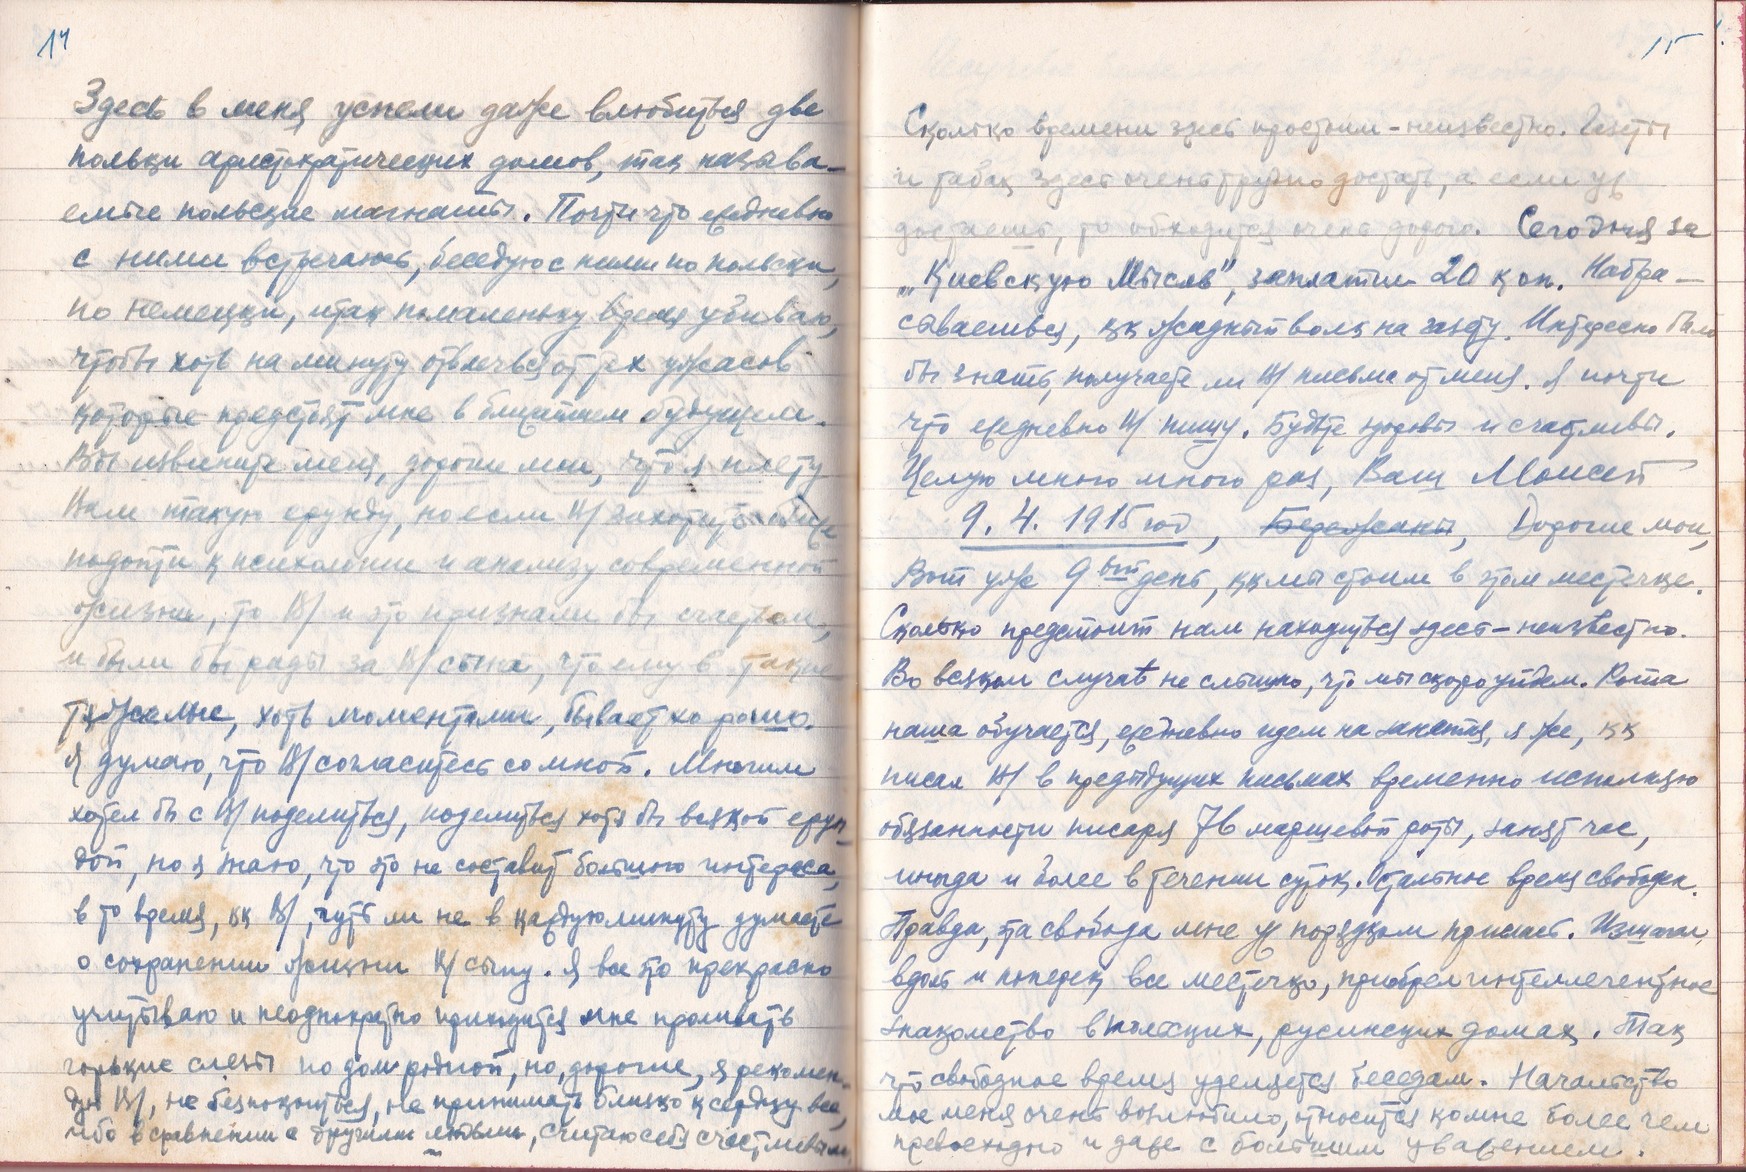 14
Здесь в меня успели даже влюбиться две
польки аристократических домов, так называ-
емые польские магнаты. Почти что ежедневно
с ними встречаюсь, беседую с ними по польски,
по немецки, и так помаленьку время убиваю,
чтобы хоть на минуту отвлечься от тех ужасов
которые предстоят мне в ближайшем будущем.
Вы извините меня, дорогие мои, что я плету
Вам такую ерунду, но если В/ захотите
подойти к психологии и анализу современной
жизни, то В/ и это признали бы счастьем,
и были бы рады за В/ сына, что ему в такие
тяжелые, хоть моментами, бывает хорошо.
Я думаю, что В/ согласитесь со мной. Многим
хотел бы с В/ поделиться, поделиться хотя бы всякой ерун-
дой, но я знаю, что это не составит большого интереса,
в то время, кк В/, чуть ли не в каждую минуту думаете
о сохранении жизни В/ сыну. Я все это прекрасно
учитываю и неоднократно приходится мне проливать
горькие слезы по дом родной, но, дорогие, я рекомен-
дую В/, не безпокоиться, не принимать близко к сердцу все,
ибо в сравнении с другими людьми, считаю себя счастливым
15
Сколько времени здесь простоим - неизвестно. Газеты
и табак здесь очень трудно достать, а если уж
достаешь, то обходится очень дорого. Сегодня за
„Киевскую Мысль", заплатил 20 коп. Набра-
сываешься, кк жадный волк на газету. Интересно было
бы знать, получаете ли В/ письма от меня. Я почти
что ежедневно В/ пишу. Будьте здоровы и счастливы.
Целую много много раз, Ваш Моисей
9. 4. 1915 год, Бережаны, Дорогие мои,
Вот уже 9 ый день, кк мы стоим в этом местечке.
Сколько предстоит нам находиться здесь - неизвестно.
Во всяком случаѣ не слышно, что мы скоро уйдем. Рота
наша обучается, ежедневно идем на занятия, я же, кк
писал В/ в предыдущих письмах временно исполняю
обязанности писаря 7в маршевой роты, занят час,
иногда и более в течении суток. Остальное время свободен.
Правда, эта свобода мне уж порядком приелась. Изшагал,
вдоль и поперек все местечко, приобрел интеллегентное
знакомство в польских, русинских домах. Так
что свободное время уделяется беседам. Начальство
мое меня очень возлюбило, относится ко мне более чем
превосходно и даже с большим уважением.